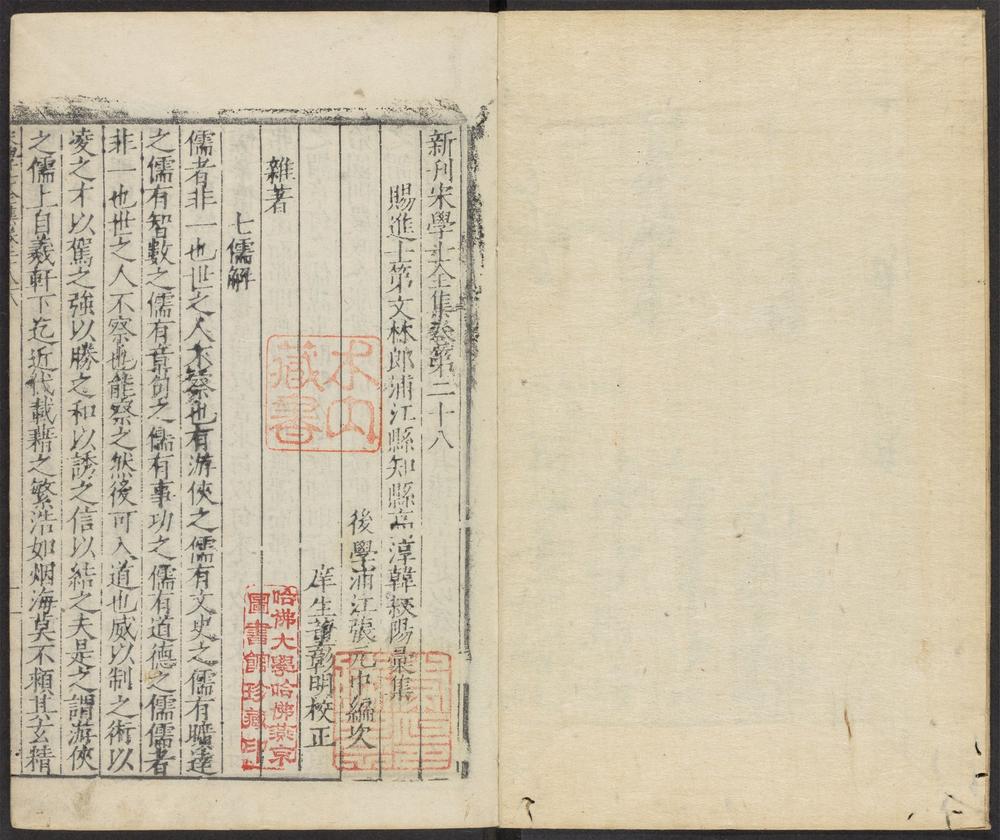 新刋宋學士全集卷第二十八
賜進士第文林郎浦江縣知縣高淳韓叔陽彙集
後學浦江張元中編次
庠生董彰明校正
雜著
七儒解
儒者非一也世之人不察也有游俠之儒有文史之儒有曠達
之儒有智數之儒有章句之儒有事功之儒有道德之儒儒者
非一也世之人不察也能察之然後可入道也威以制之術以
凌之才以駕之強以勝之和以誘之信以結之夫是之謂游俠
之儒上自羲軒下迄近代載藉之繁浩如烟海莫不賴其玄精
木山
藏書
哈佛大學哈佛燕京
圖書館珍藏印